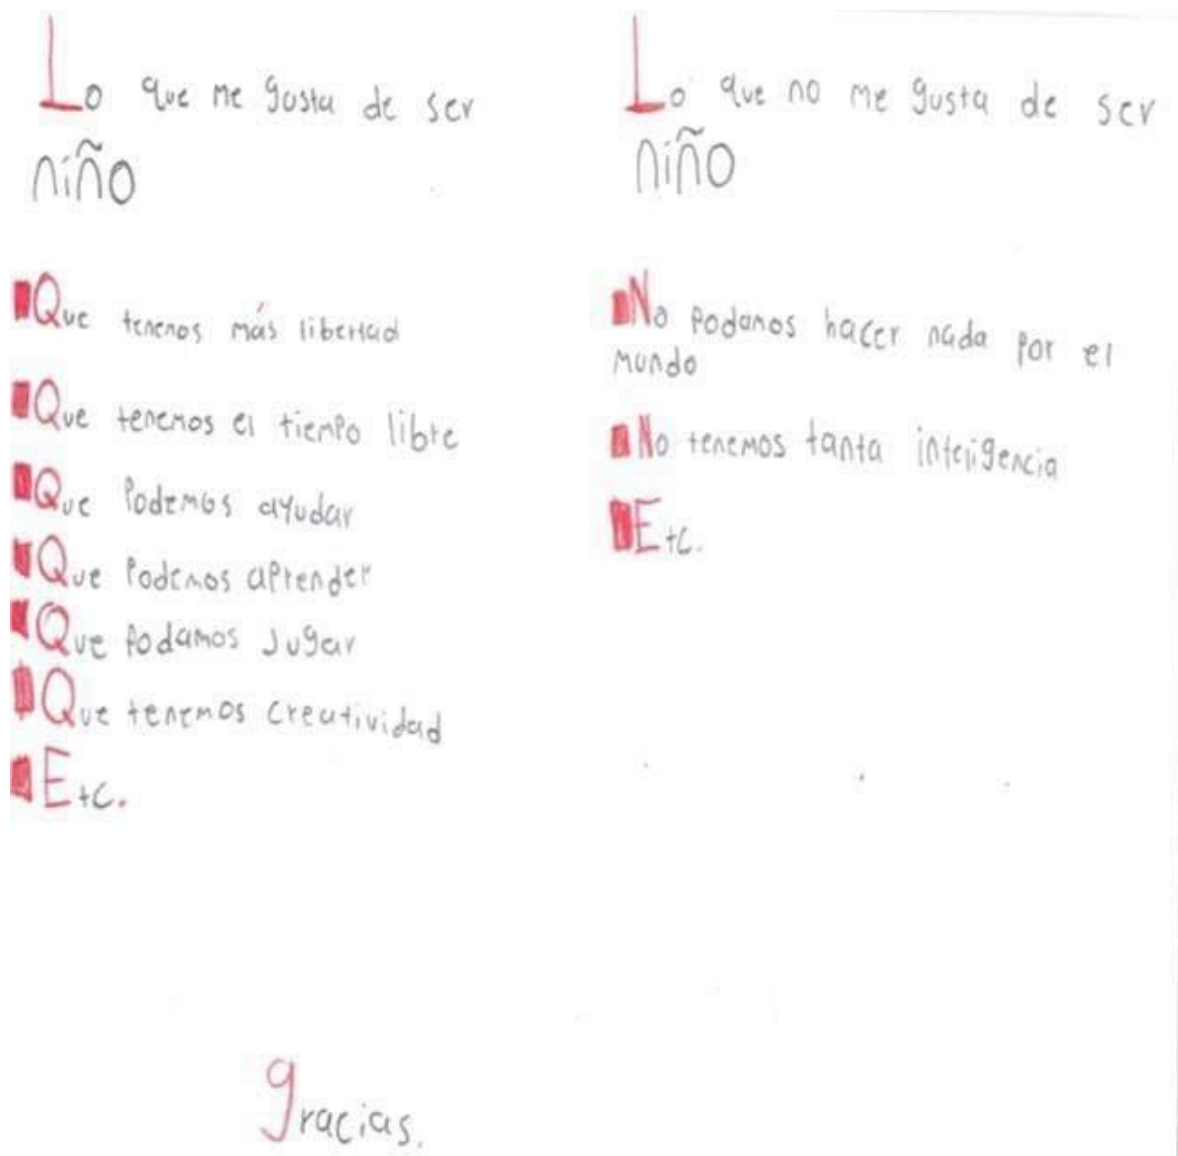 Lo que me gusta de ser
niño
Que tenemos más libertad
Que tenemos el tiempo libre
Que Podemos ayudar
Que Podemos aprender
Que Podamos Jugar
Que tenemos creatividad
Etc.
Lo que no me gusta de ser
niño
No Podamos hacer nada por el
mundo
No tenemos tanta inteligencia
Etc.
gracias.